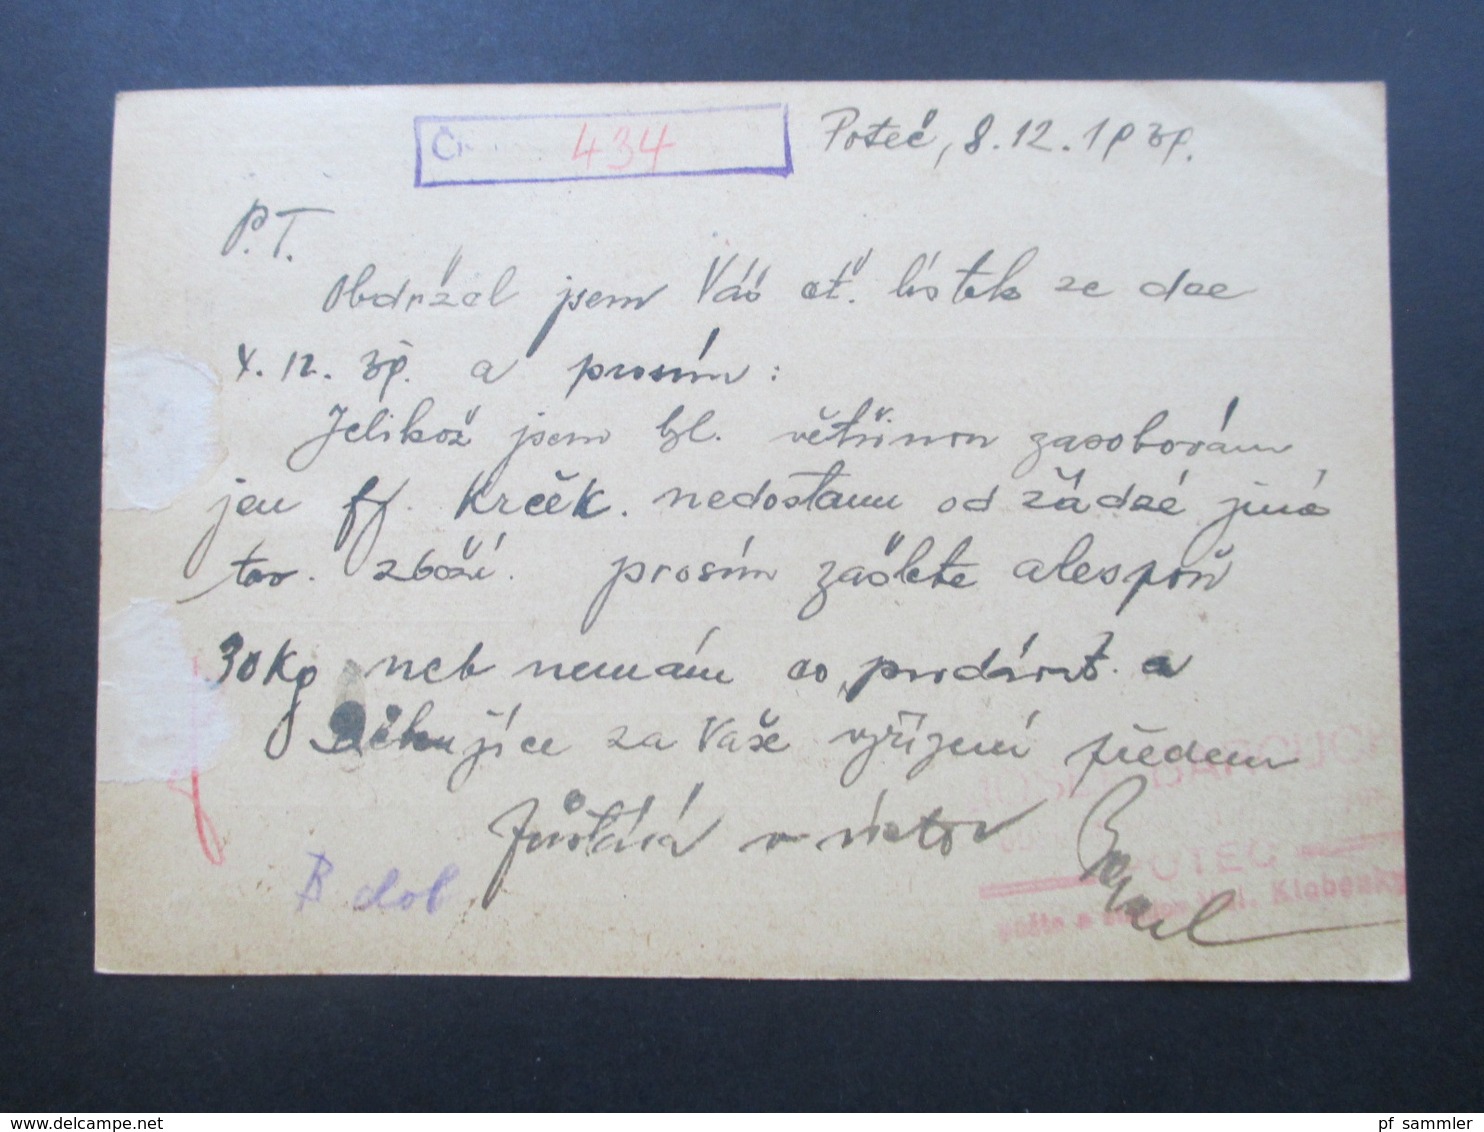 434
Poteč, 8.12.1939.
P.T.
Obdržel jsem Váš ct. lístek ze dne
4.12.39. a prosím:
Jelikož jsem bl. většinou zasobován
jen ff. Krček. nedostanu od žádné jiné
tov. zboží. prosím zašlete alespoň
30 Kg neb nemám co prodávat. a
Děkujíce za Vaše vyřízení předem
Zůstává v úctou
B dob.
POTEČ
pošta a Val. Klobouky
www.delcampe.net
pf_sammler